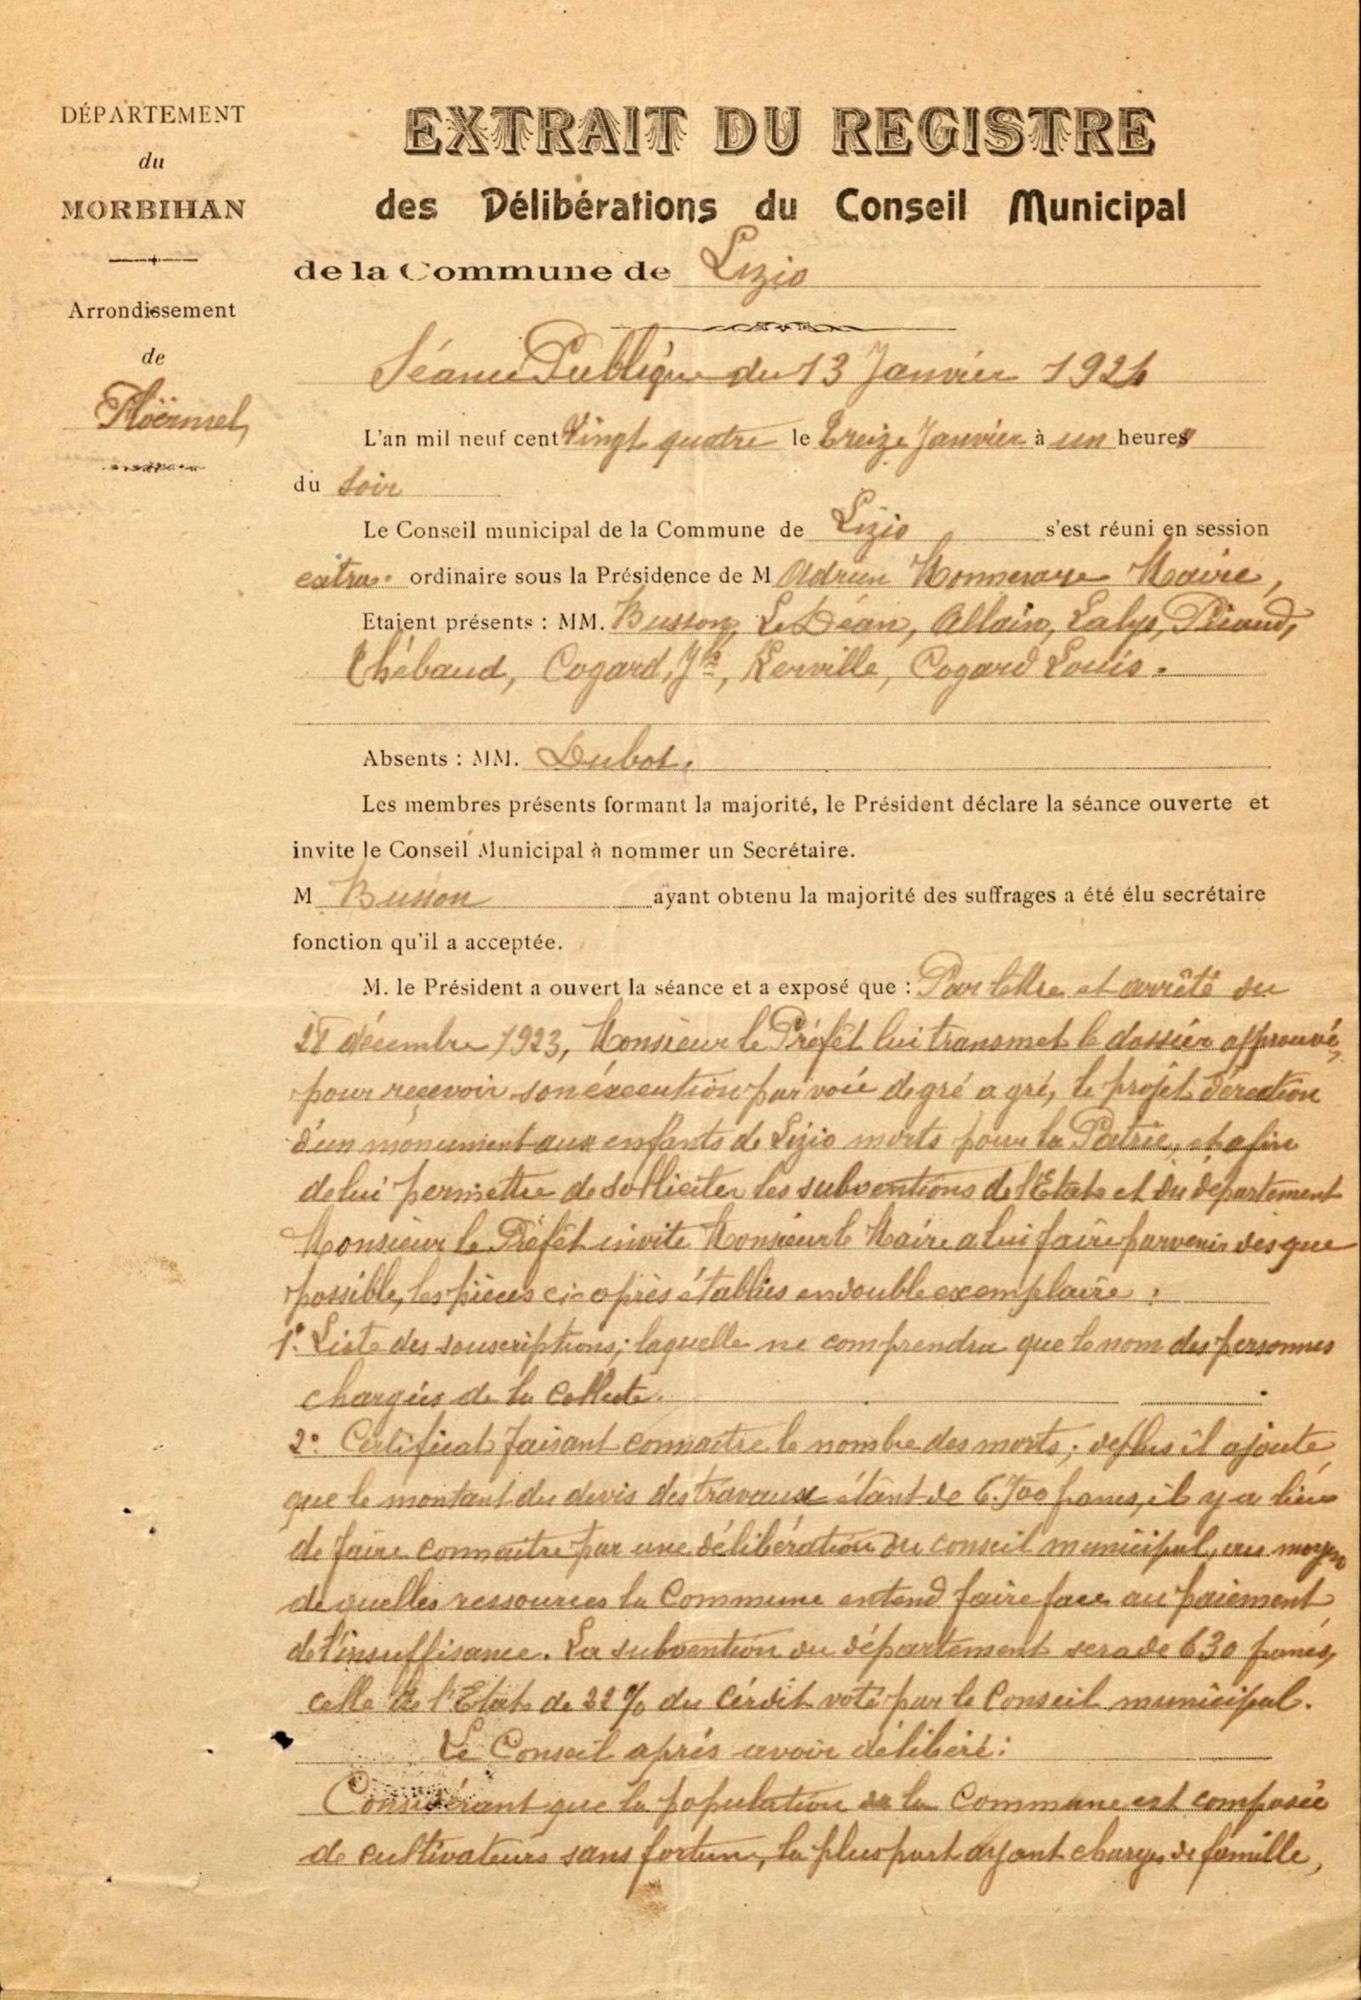 DÉPARTEMENT
du
MORBIHAN
Arrondissement
de
Ploërmel,
EXTRAIT DU REGISTRE
des Délibérations du Conseil Municipal
de la Commune de Lizio
Séance Publique du 13 Janvier 1924
L'an mil neuf cent Vingt quatre le treize Janvier à un heures
du soir
Le Conseil municipal de la Commune de Lizio s'est réuni en session
extra- ordinaire sous la Présidence de M Adrien Monneraye Maire,
Etaient présents : MM. Busson, Le Déan, Allain, Laly, Picaud,
Thébaud, Cogard, Jh, Kerville, Cogard Louis.
Absents : MM. Dubot.
Les membres présents formant la majorité, le Président déclare la séance ouverte et
invite le Conseil Municipal à nommer un Secrétaire.
M Busson ayant obtenu la majorité des suffrages a été élu secrétaire
fonction qu'il a acceptée.
M. le Président a ouvert la séance et a exposé que : Par lettre et arrêté du
28 décembre 1923, Monsieur le Préfêt lui transmet le dossier approuvé,
pour recevoir son éxecution par voie de gré a gré, le projet d'érection
d'un monument aux enfants de Lizio morts pour la Patrie, et afin
de lui permettre de solliciter les subventions de l'Etat et du département
Monsieur le Préfêt invite Monsieur le Maire a lui faire parvenir dès que
possible, les pièces ci-après établies en double exemplaire :
1°. Liste des souscriptions; laquelle ne comprendra que le nom des personnes
chargées de la collecte.
2°. Certificat faisant connaitre le nombre des morts; de plus il ajoute
que le montant du devis des travaux étant de 6.700 francs, il y a lieu
de faire connaitre par une délibération du conseil municipal, au moyen
de quelles ressources la Commune entend faire face au paiement
de l'insuffisance. La subvention du département sera de 630 francs,
celle de l'Etat de 22% du cérdit voté par le Conseil municipal.
Le Conseil après avoir délibéré :
Considérant que la population de la Commune est composée
de cultivateurs sans fortune, la plus part ayant charge de famille,